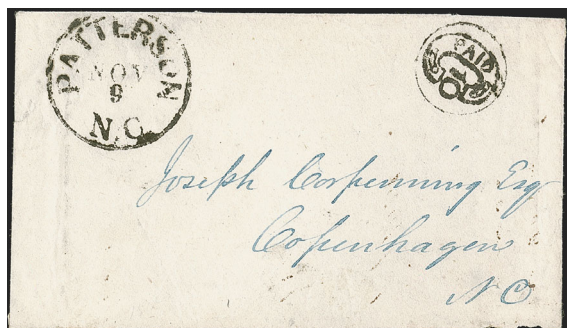 PATTERSON
NOV
9
N.C.
PAID
5
Joseph Corpenning Esq
Copenhagen
N C